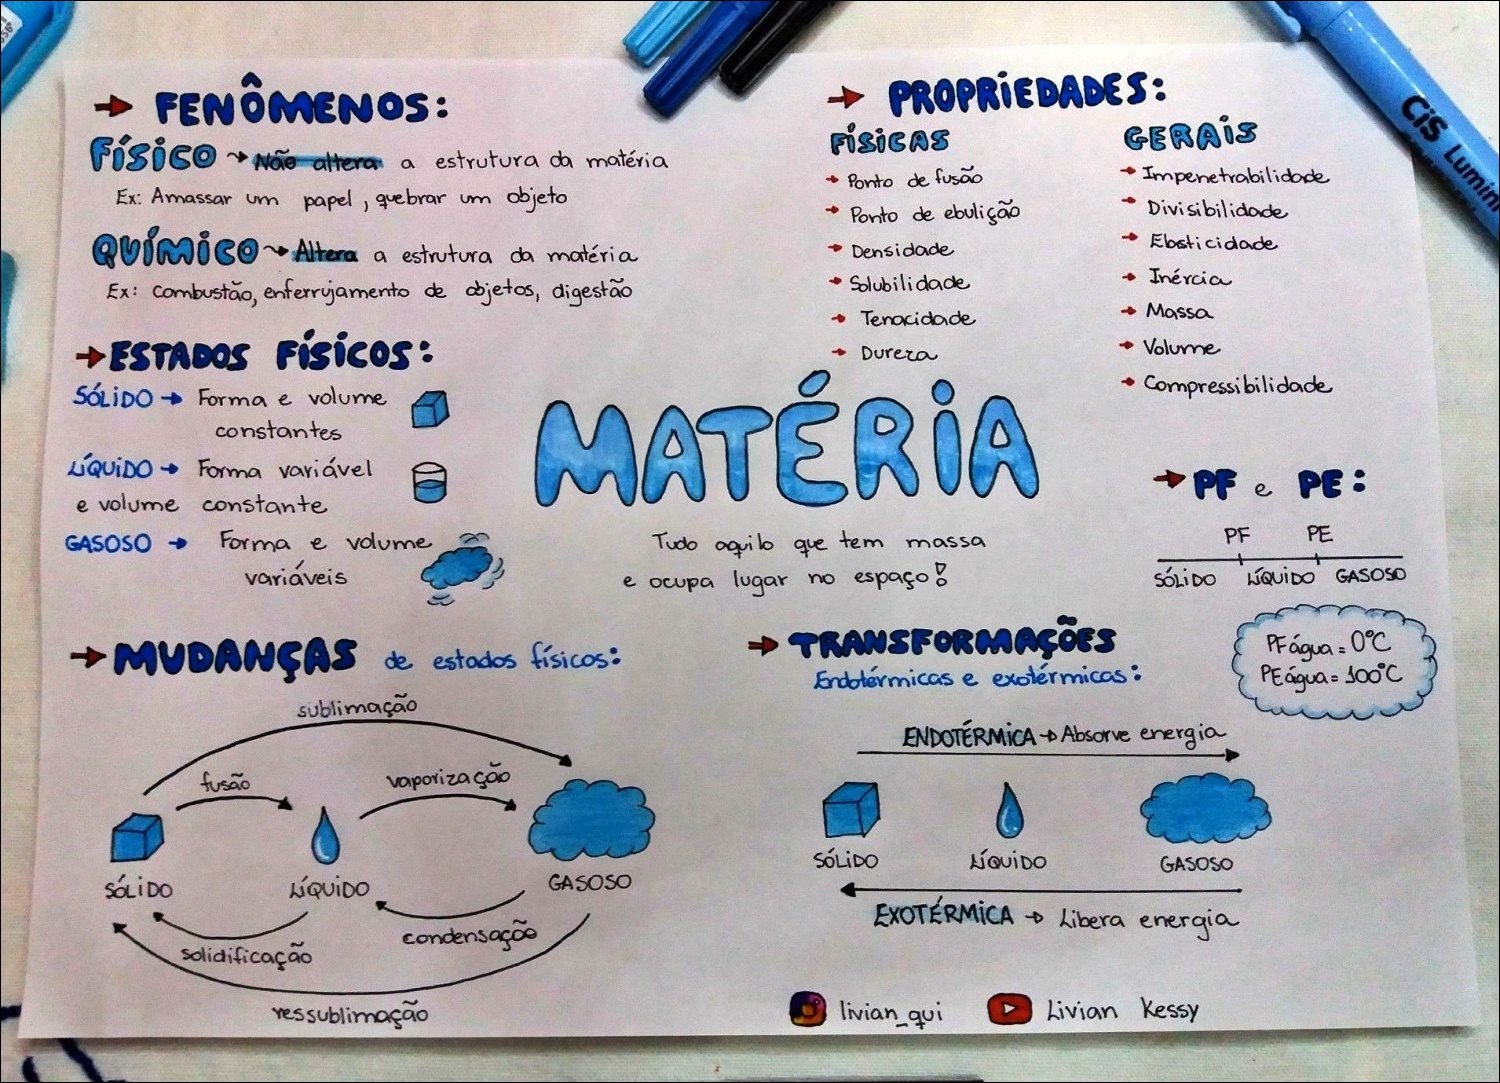 FENÔMENOS:
FÍSICO → Não altera a estrutura da matéria
Ex: Amassar um papel, quebrar um objeto
QUÍMICO → Altera a estrutura da matéria
Ex: combustão, enferrujamento de objetos, digestão
ESTADOS FÍSICOS:
SÓLIDO → Forma e volume
constantes
LÍQUIDO → Forma variável
e volume constante
GASOSO → Forma e volume
variáveis
PROPRIEDADES:
FÍSICAS
→ Ponto de fusão
→ Ponto de ebulição
→ Densidade
→ Solubilidade
→ Tenacidade
→ Dureza
GERAIS
→ Impenetrabilidade
→ Divisibilidade
→ Elasticidade
→ Inércia
→ Massa
→ Volume
→ Compressibilidade
MATÉRIA
Tudo aquilo que tem massa
e ocupa lugar no espaço!
PF e PE:
PF PE
SÓLIDO LÍQUIDO GASOSO
PF água = 0°C
PE água = 100°C
MUDANÇAS de estados físicos:
sublimação
fusão vaporização
SÓLIDO LÍQUIDO GASOSO
solidificação condensação
ressublimação
TRANSFORMAÇÕES
Endotérmicas e exotérmicas:
ENDOTÉRMICA → Absorve energia
SÓLIDO LÍQUIDO GASOSO
EXOTÉRMICA → Libera energia
livian_qui Livian Kessy
CiS Lumini